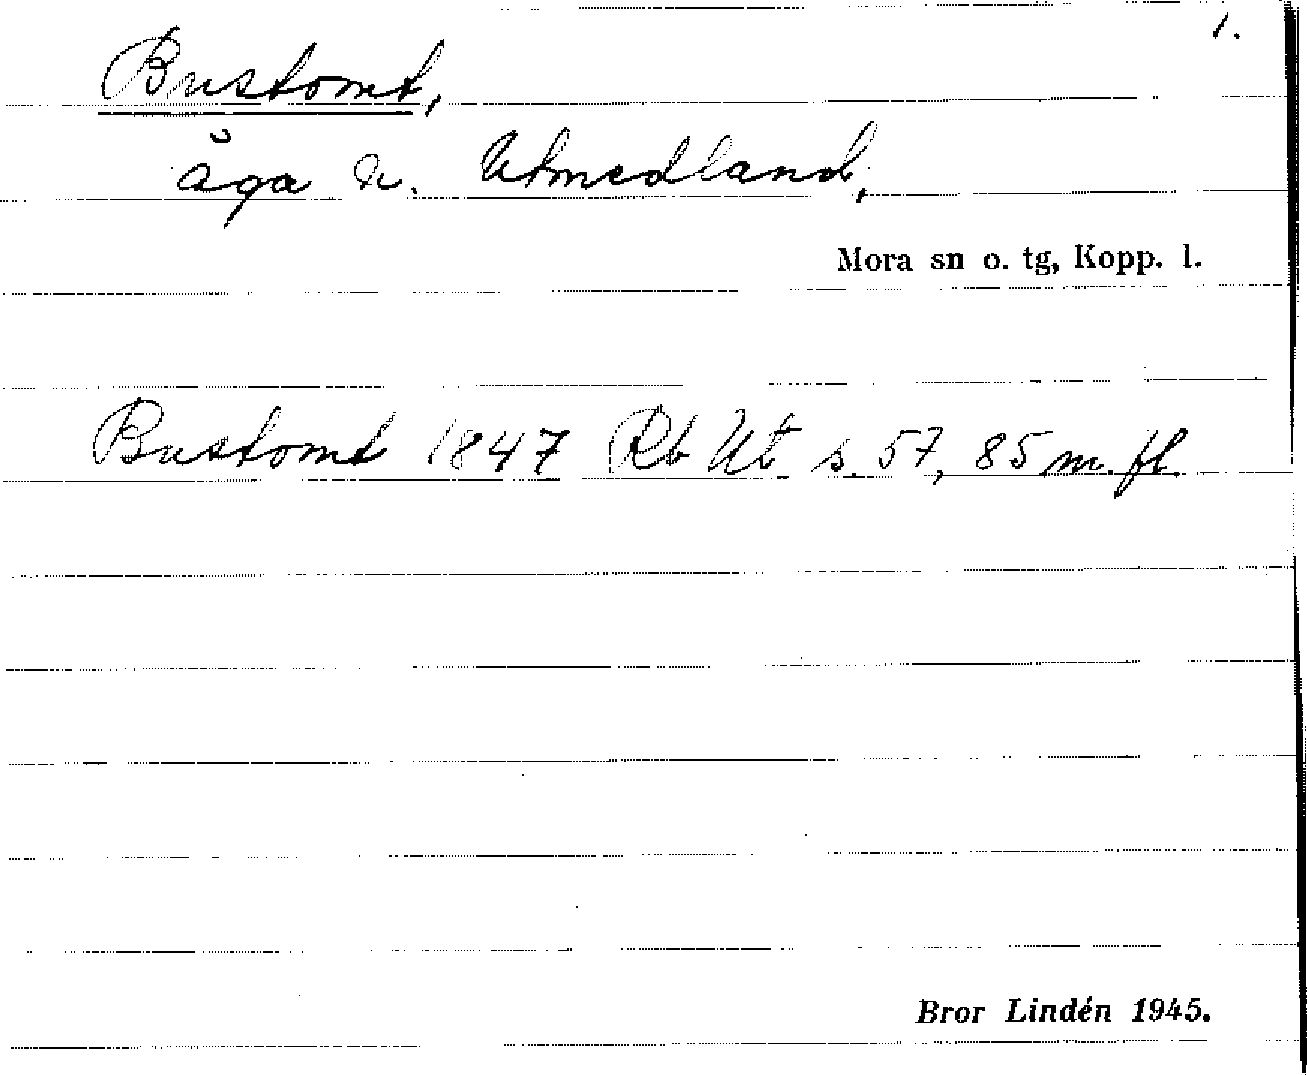 1.
Bustomt,
åga n. Utmedland,
Mora sn o. tg, Kopp. l.
Bustomt 1847 Rb Ut s. 57, 85 m. fl.
Bror Lindén 1945.